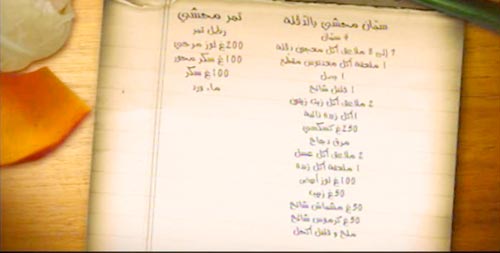 سمّان محشي بالدلّه
٧ إلى ٨ ملاعق أكل معجون دلّه
١ ملعقة أكل معدنوس مقطع
١ بصل
١ فلفل شائح
٢ ملاعق أكل زيت زيتون
١ أكل زبدة ذائبة
250غ كسكسي
مرق دجاج
2 ملاعق أكل عسل
١ ملعقة أكل زبدة
100غ لوز
50غ زبيب
50غ مشماش شائح
50غ كرموس شائح
ملح و فلفل أكحل
تمر محشي
رطل تمر
200غ لوز مرحي
100غ سكر محور
100غ سكر
ماء ورد